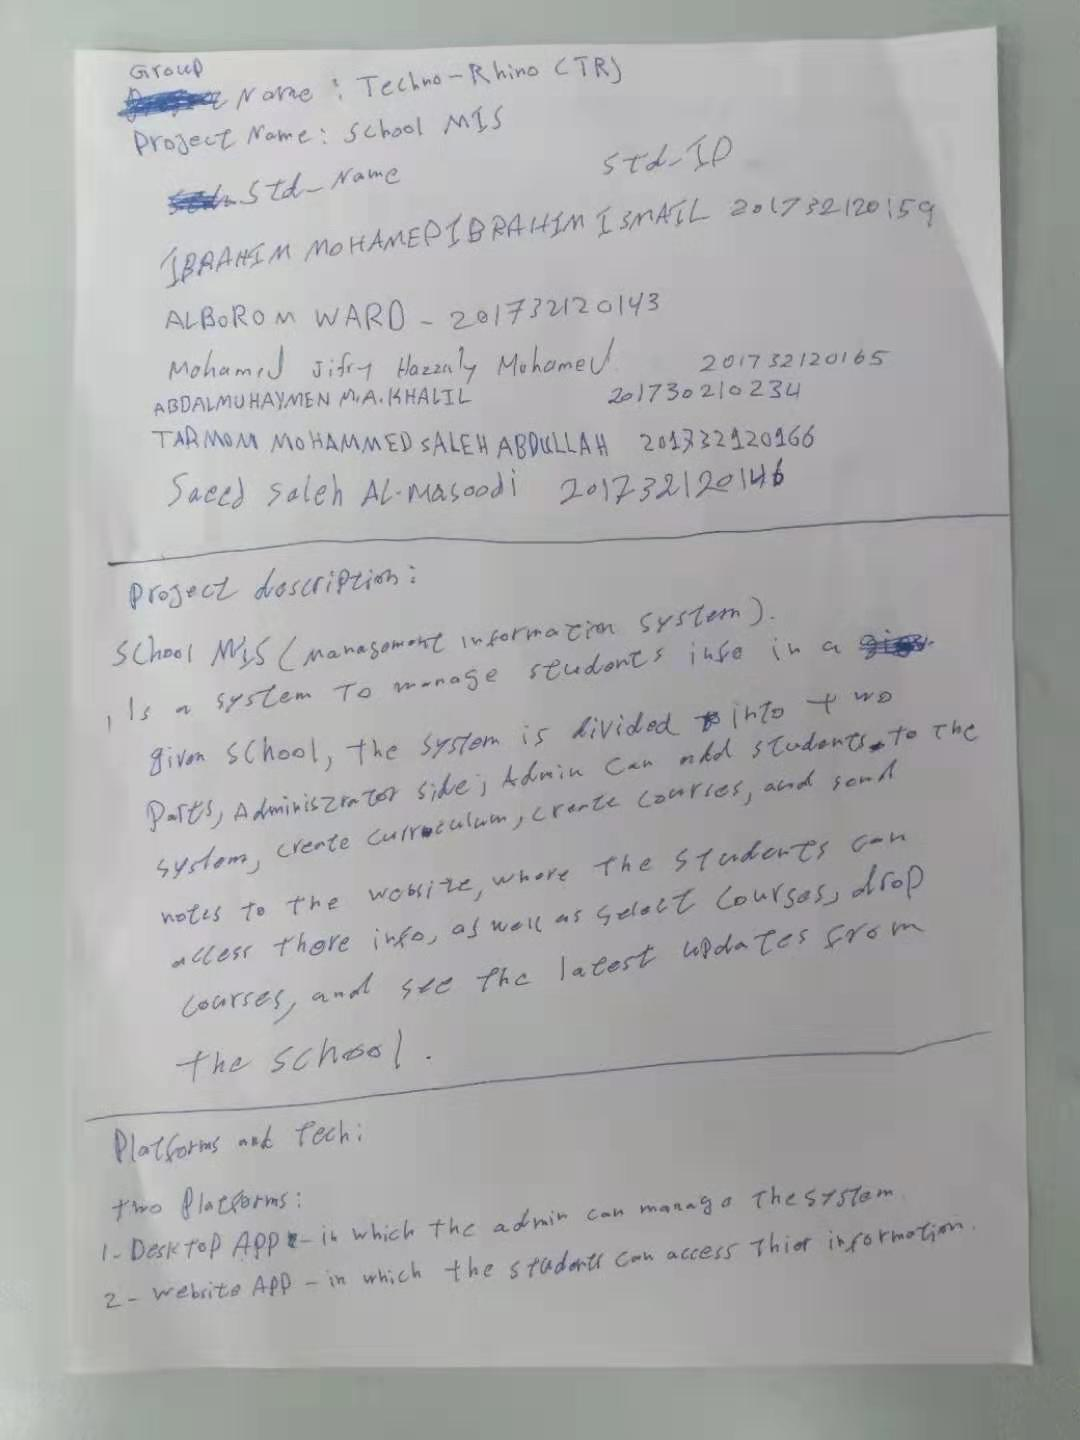 Group
Name : Techno-Rhino (TR)
Project Name: School MIS
Std-Name Std-ID
IBRAHIM MOHAMED IBRAHIM ISMAIL 201732120159
ALBOROM WARD - 201732120143
Mohamed Jifry Hazzaly Mohamed 201732120165
ABDALMUHAYMEN M.A.KHALIL 201730210234
TARMOM MOHAMMED SALEH ABDULLAH 201732120166
Saeed Saleh AL-Masoodi 201732120146
Project description:
School MIS (Management information system).
, Is a system To manage students info in a
given school, the system is divided into two
parts, Administrator side; Admin can add students to the
system, create curroculum, create courses, and send
notes to the website, where the students can
access there info, as well as select courses, drop
courses, and see the latest updates from
the school.
Platforms and Tech:
two Platforms:
1- Desktop App - in which the admin can manage the system.
2- website App - in which the students can access thier information.